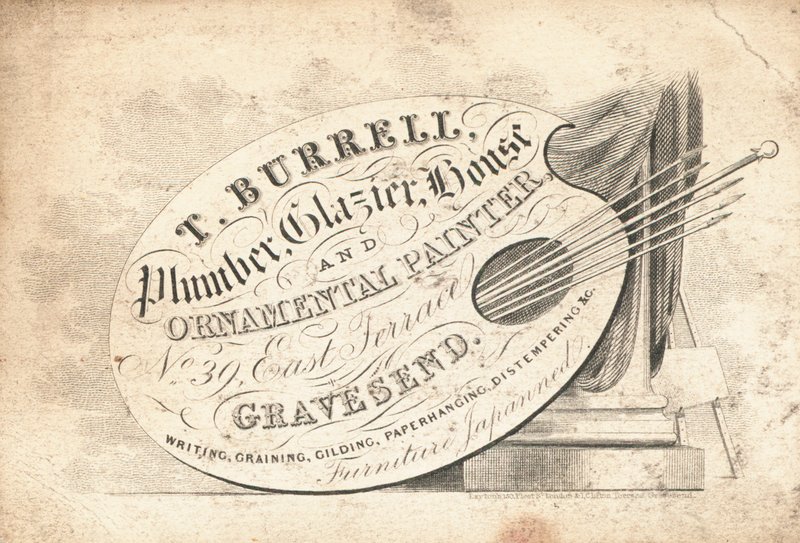 T. BURRELL,
Plumber, Glazier, House
AND
ORNAMENTAL PAINTER,
No. 39, East Terrace
GRAVESEND.
WRITING, GRAINING, GILDING, PAPERHANGING, DISTEMPERING &C.
Furniture Japanned
Layton's 150, Fleet St. London & 1, Clifton Terrace Gravesend.